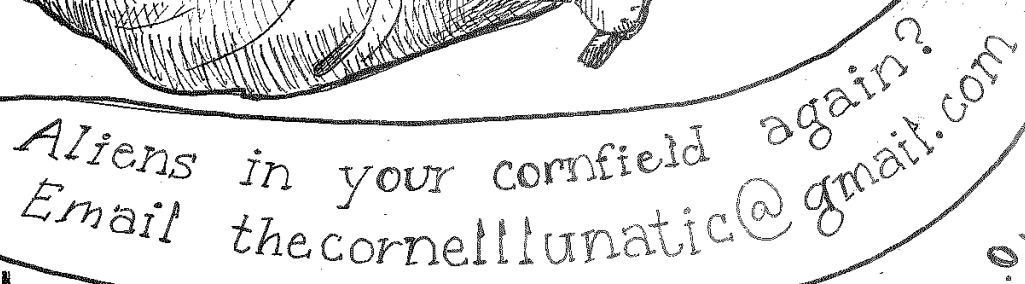 Aliens in your cornfield again?
Email thecornelllunatic@gmail.com